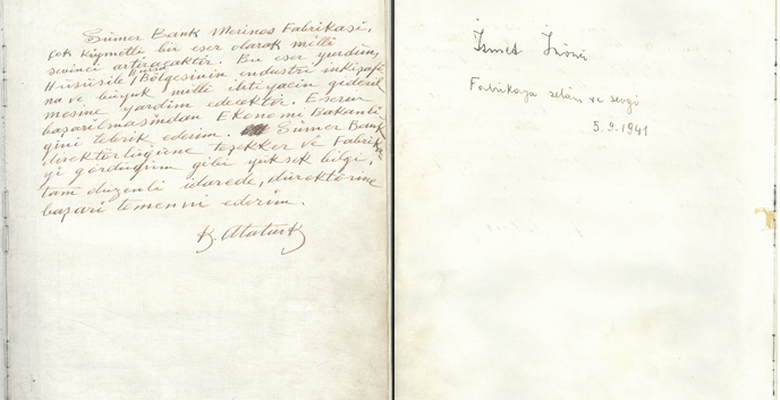 Sümer Bank Merinos Fabrikasi,
çok kiymetli bir eser olarak milli
sevinci artiracaktir. Bu eser yurdun,
Hususile Bursa Bölgesinin endustri inkişafi-
na ve büyük milli ihtiyacin gideril
mesine yardim edecektir. Eserin
başarilmasindan Ekonomi Bakanli-
ğini tebrik ederim. Sümer Bank
direktörlüğüne teşekker ve Fabrika-
yi gördüğüm gibi yüksek bilgi,
tam düzenli idarede, direktörüne
başari temenni ederim.
K. Atatürk
İsmet İnönü
Fabrikaya selâm ve sevgi
5.9.1941